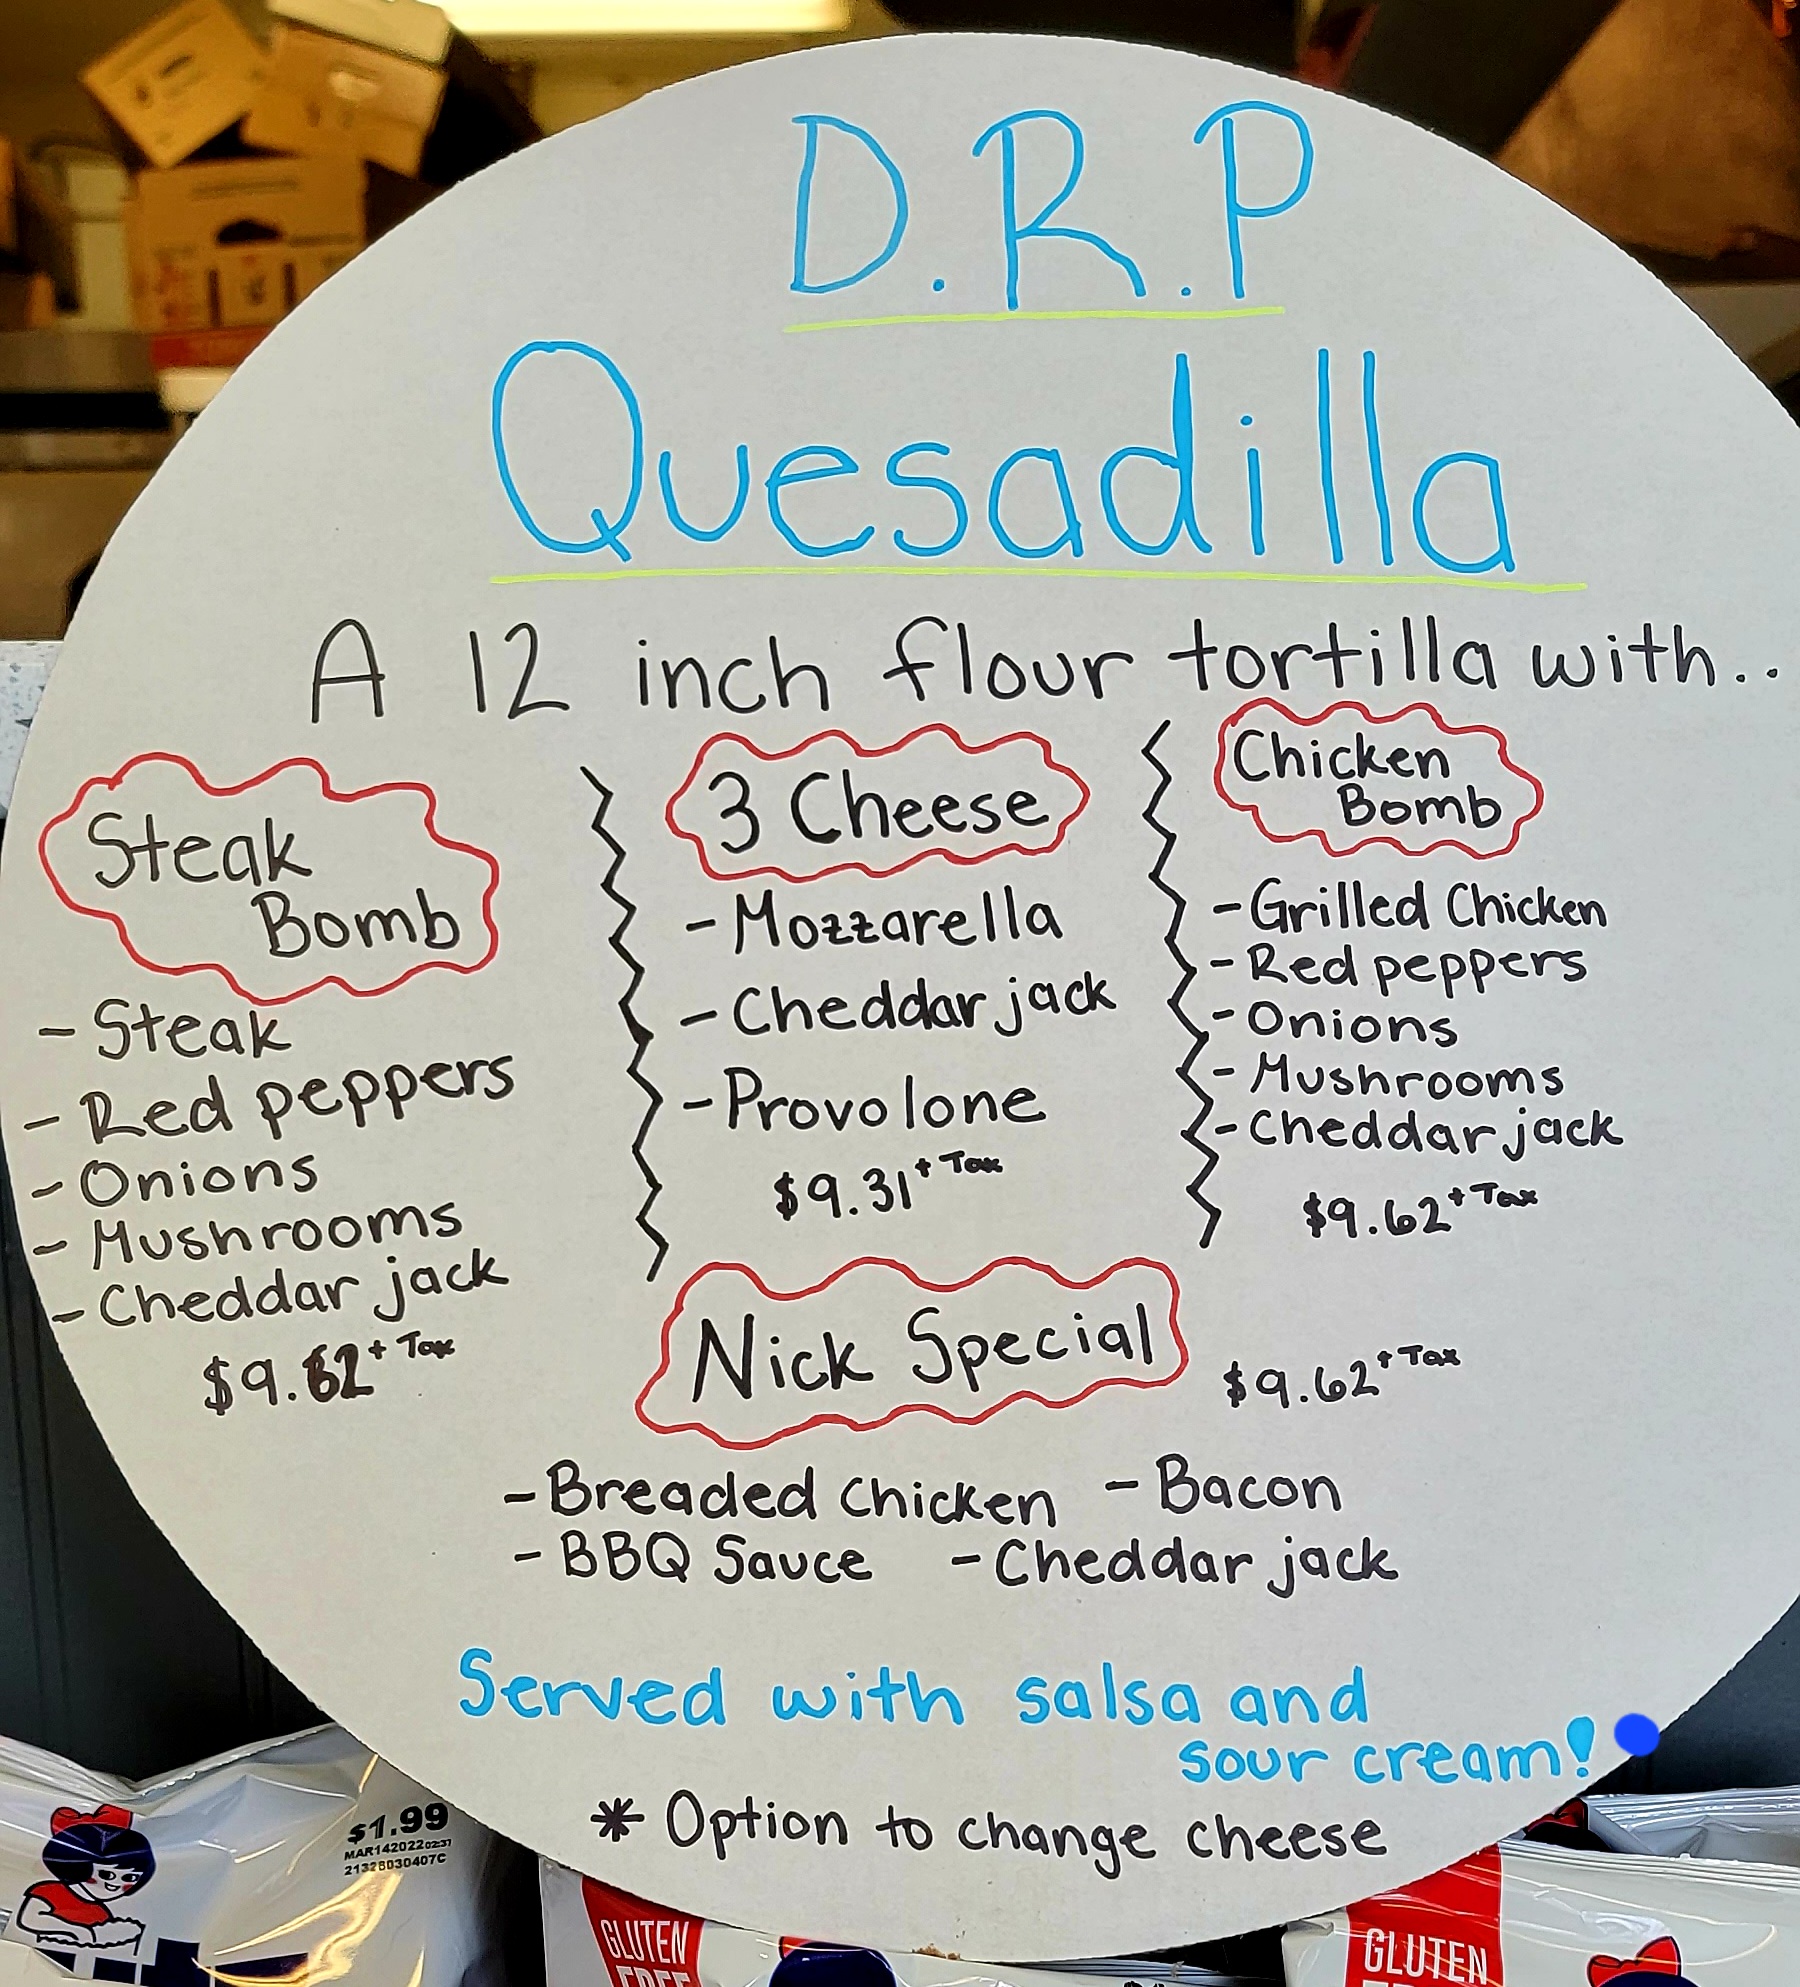 D.R.P
Quesadilla
A 12 inch flour tortilla with..
Steak
Bomb
- Steak
- Red peppers
- Onions
- Mushrooms
- Cheddar jack
$9.62 + Tax
3 Cheese
- Mozzarella
- Cheddar jack
- Provolone
$9.31 + Tax
Chicken
Bomb
- Grilled Chicken
- Red peppers
- Onions
- Mushrooms
- Cheddar jack
$9.62 + Tax
Nick Special $9.62 + Tax
- Breaded Chicken - Bacon
- BBQ Sauce - Cheddar jack
Served with salsa and
sour cream!
* Option to change cheese
$1.99
MAR142022 02:37
21328030407C
GLUTEN
FREE
GLUTEN